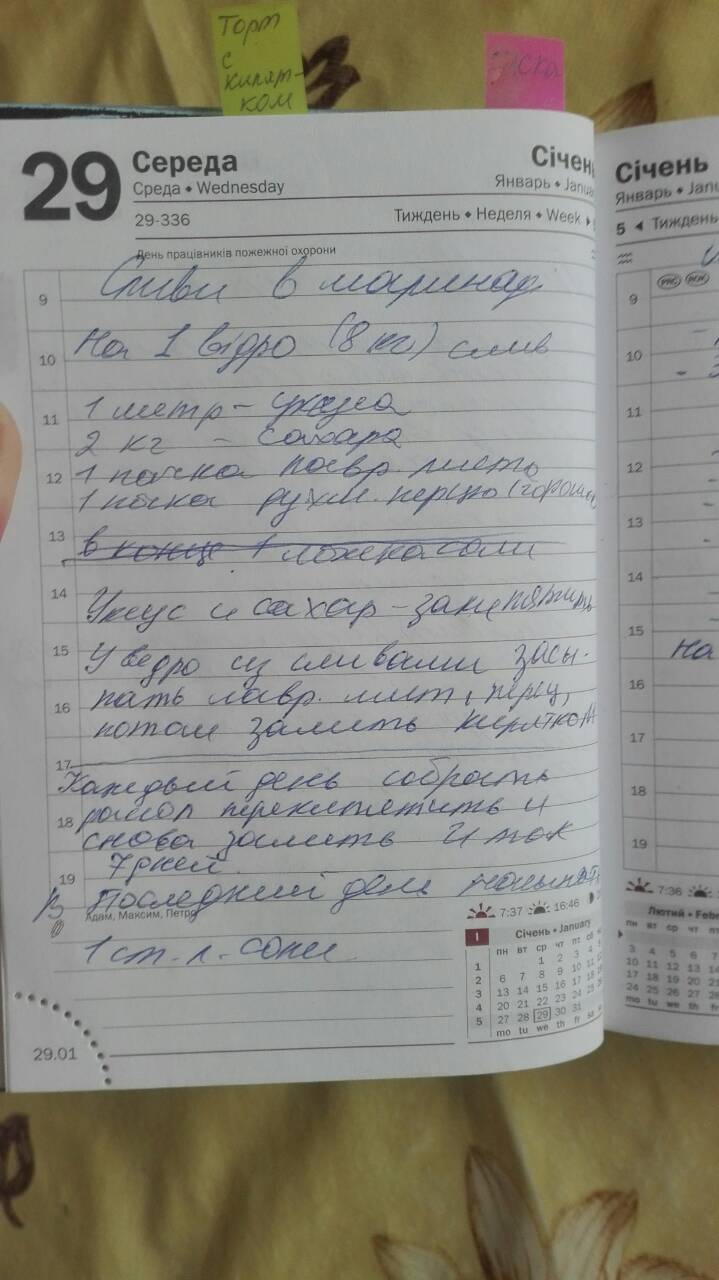 Торт
с
кипят-
ком
29
Середа
Среда • Wednesday
Січень
Январь • Janua
29-336
Тиждень • Неделя • Week
День працівників пожежної охорони
9 Сливи в маринаді
10 На 1 відро (8 кг) слив
11 1 литр – уксуса
2 кг – сахара
12 1 пачка лавр. листа
1 пачка душ. перцю (горошк
13 в конце 1 ложка соли
14 Уксус и сахар – закипятить
15 У ведро из сливами засы-
16 пать лавр. лист, перец,
потом залить кипятком
17
Каждый день собрать
18 рассол перекипятить и
снова залить и так
19 7 дней
В последний день
Адам, Максим, Петро
1 ст. л. соли
7:37 16:46
1 Січень • January
пн вт ср чт пт сб
1 1 2 3 4
2 6 7 8 9 10
3 13 14 15 16 17
4 20 21 22 23 24
5 27 28 29 30 31
mo tu we th fr
29.01
Січень
Январь • Janu
5 Тиждень
9
10
11
12
13
14
15
На
16
17
18
19
7:36
Лютий • Febr
пн вт ср чт пт
3 4 5 6 7
10 11 12 13 14
17 18 19 20 21
24 25 26 27 28
mo tu we th fr